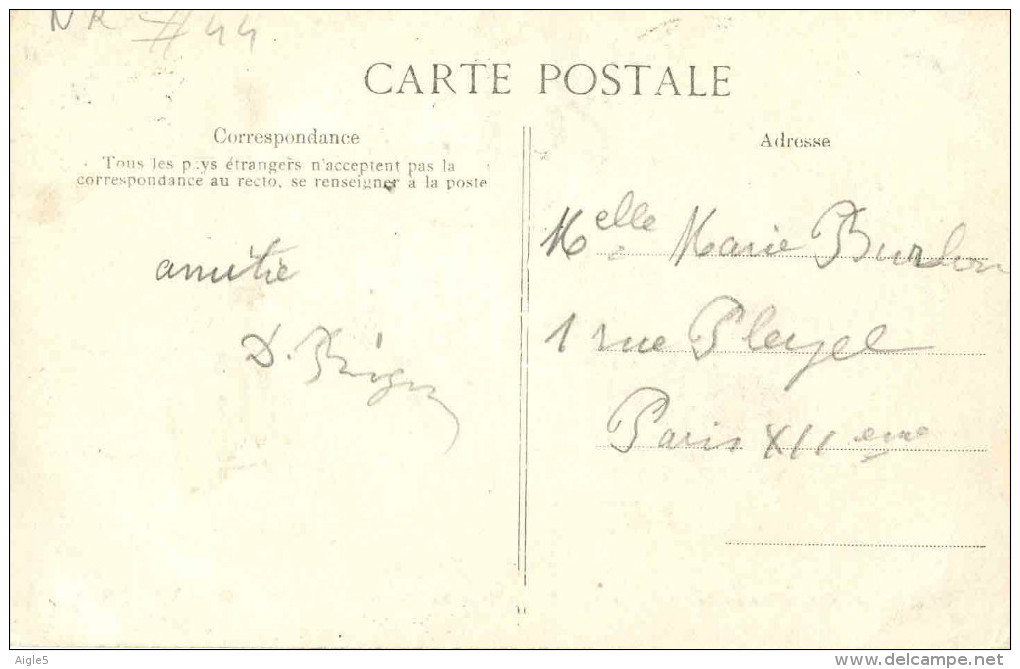 NR #44
CARTE POSTALE
Correspondance
Tous les pays étrangers n'acceptent pas la
correspondance au recto, se renseigner à la poste
amitié
D.
Adresse
Melle Marie
1 rue Pleyel
Paris XII eme
Aigle5
www.delcampe.net